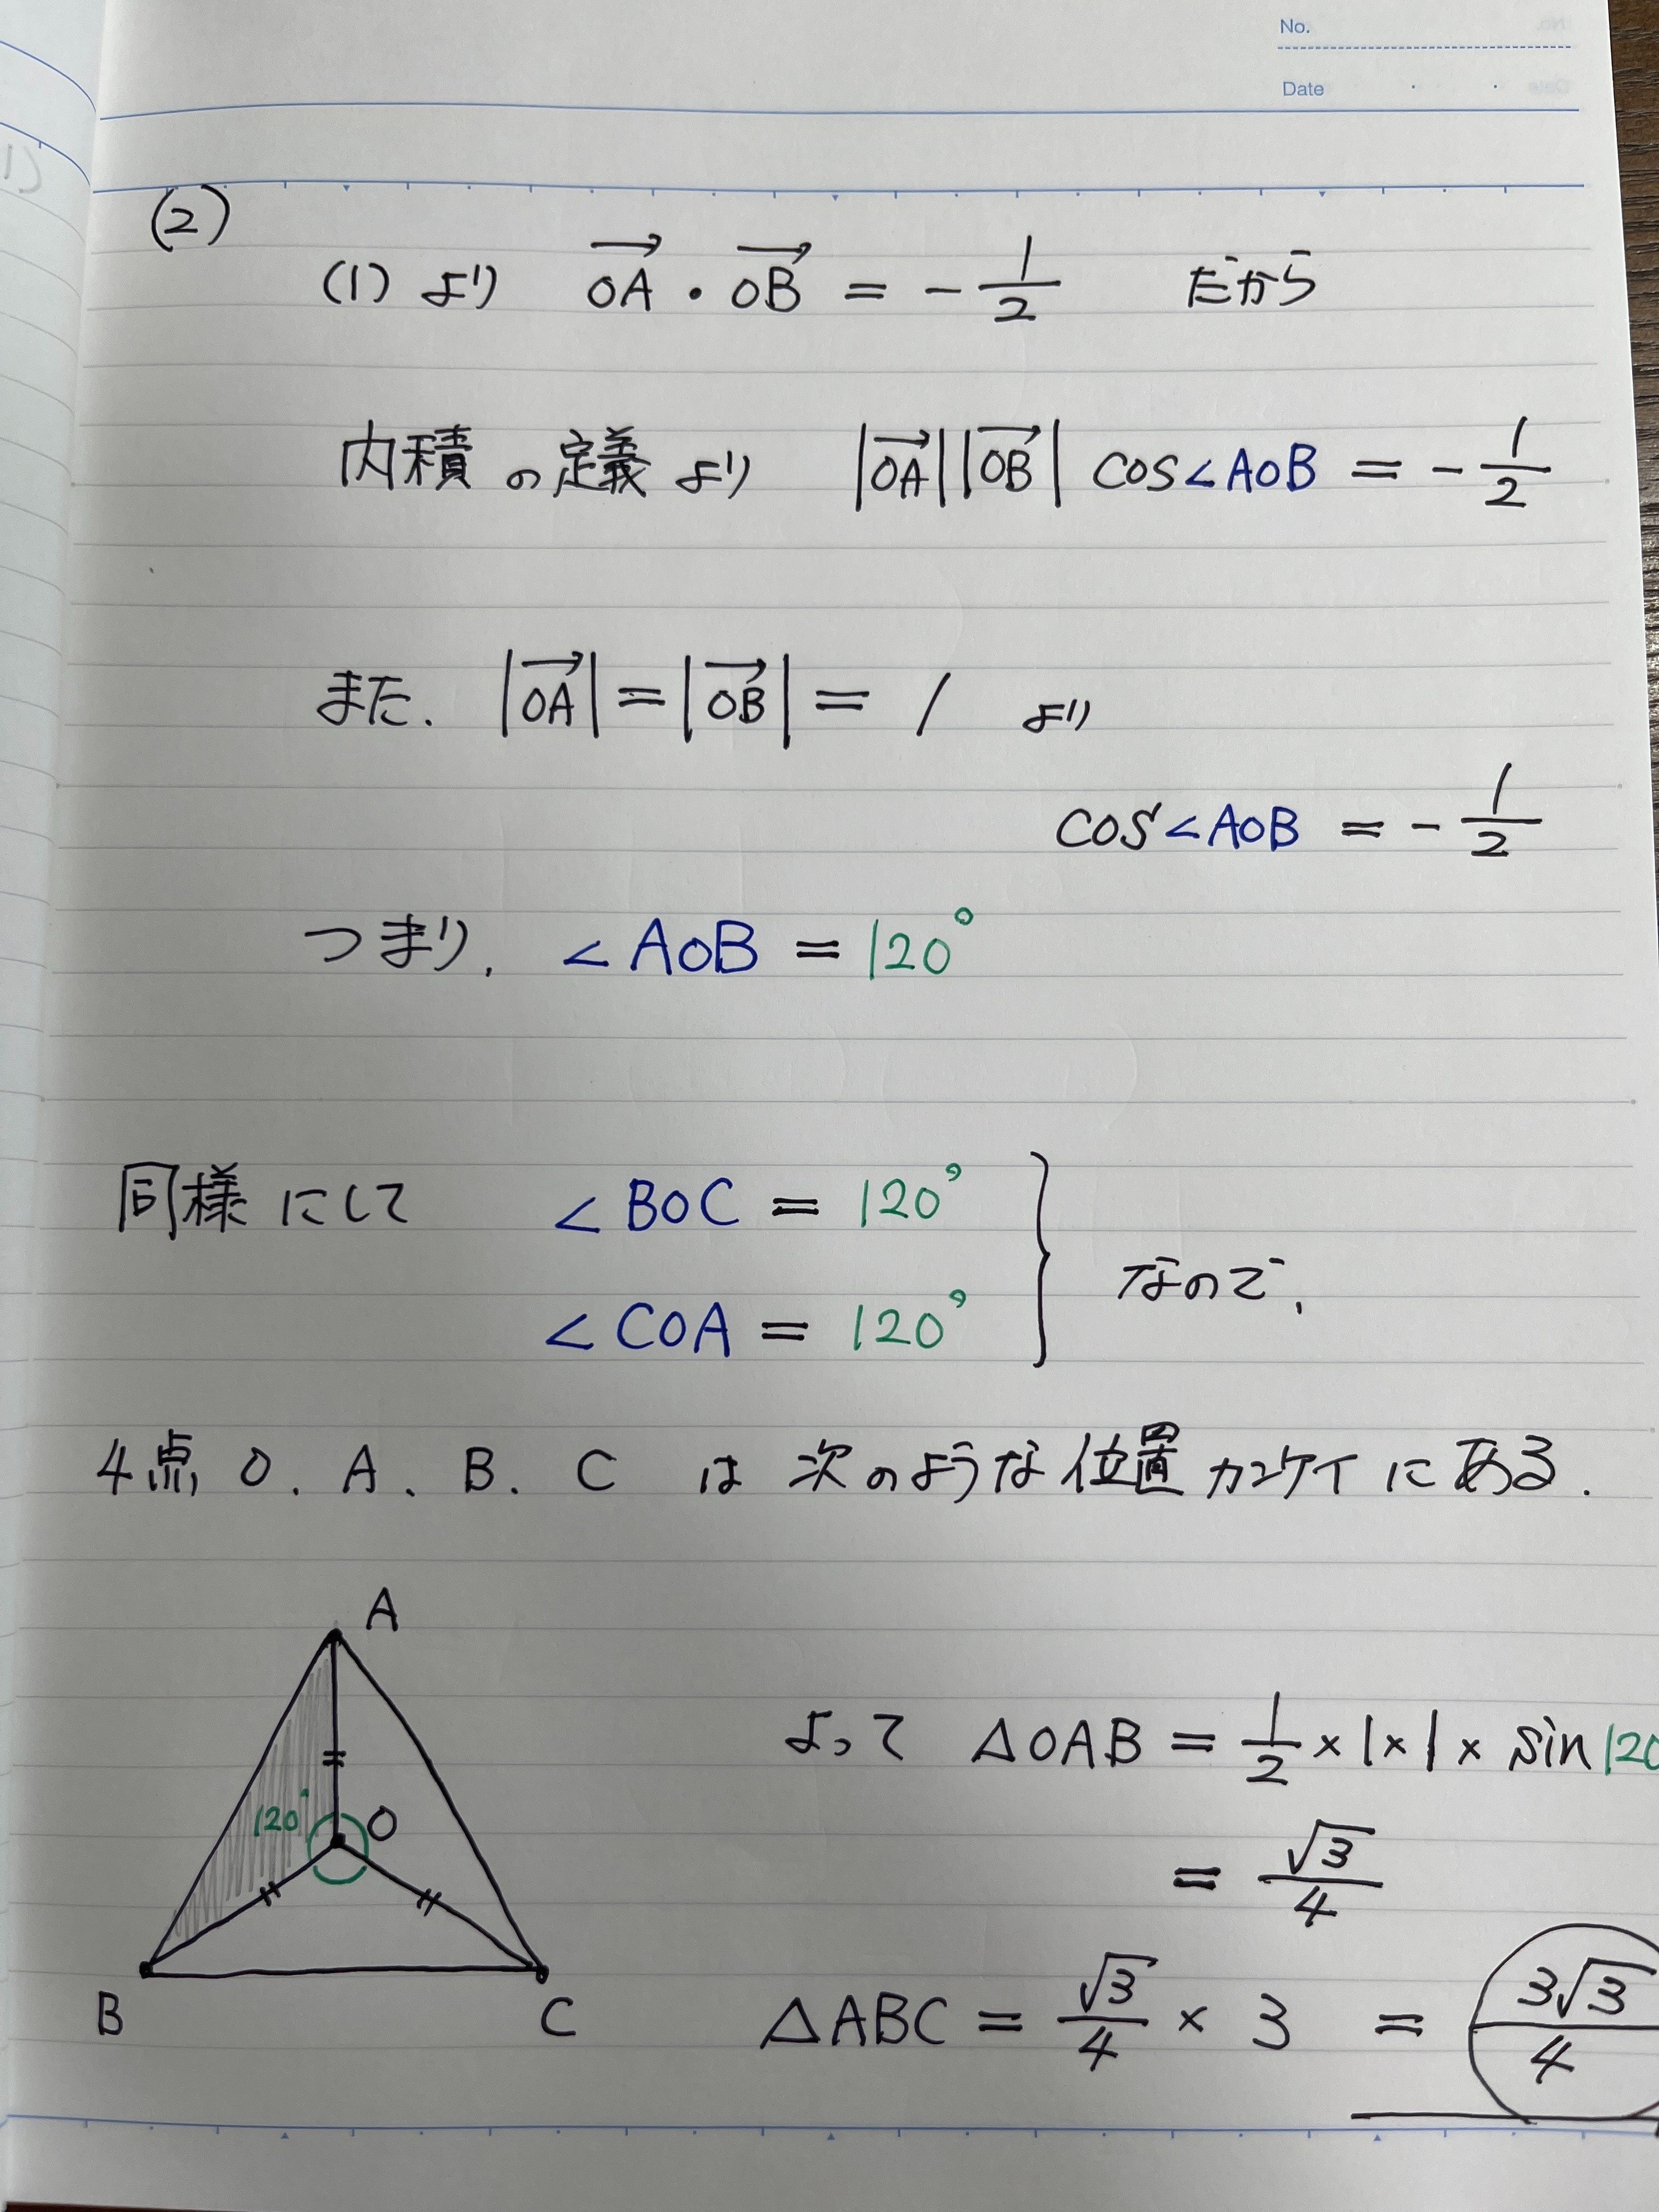 No.
Date
(2)
(1) より $\overrightarrow{OA} \cdot \overrightarrow{OB} = -\frac{1}{2}$ だから
内積の定義より $|\overrightarrow{OA}||\overrightarrow{OB}| \cos\angle AOB = -\frac{1}{2}$
また. $|\overrightarrow{OA}| = |\overrightarrow{OB}| = 1$ より
$\cos\angle AOB = -\frac{1}{2}$
つまり, ∠AOB = 120°
同様にして ∠BOC = 120°
∠COA = 120°
なので,
4点 O. A. B. C は次のような位置カンケイにある.
A
120°
O
B
C
よって $\triangle OAB = \frac{1}{2} \times 1 \times 1 \times \sin 120$
$= \frac{\sqrt{3}}{4}$
$\triangle ABC = \frac{\sqrt{3}}{4} \times 3 = \frac{3\sqrt{3}}{4}$